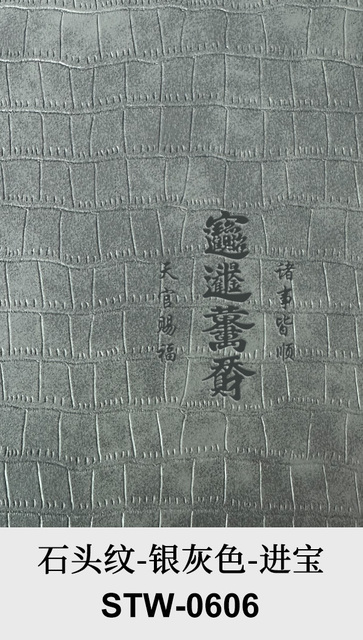 诸事皆顺
天官赐福
石头纹-银灰色-进宝
STW-0606